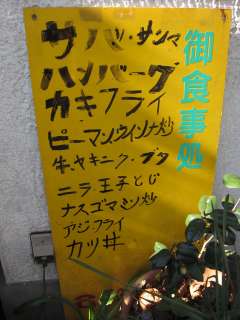 御食事処
サバ・サンマ
ハンバーグ
カキフライ
ピーマンウインナ炒
牛.ヤキニク・ブタ
ニラ・玉子とじ
ナスゴマミソ炒
アジ・フライ
カツ丼